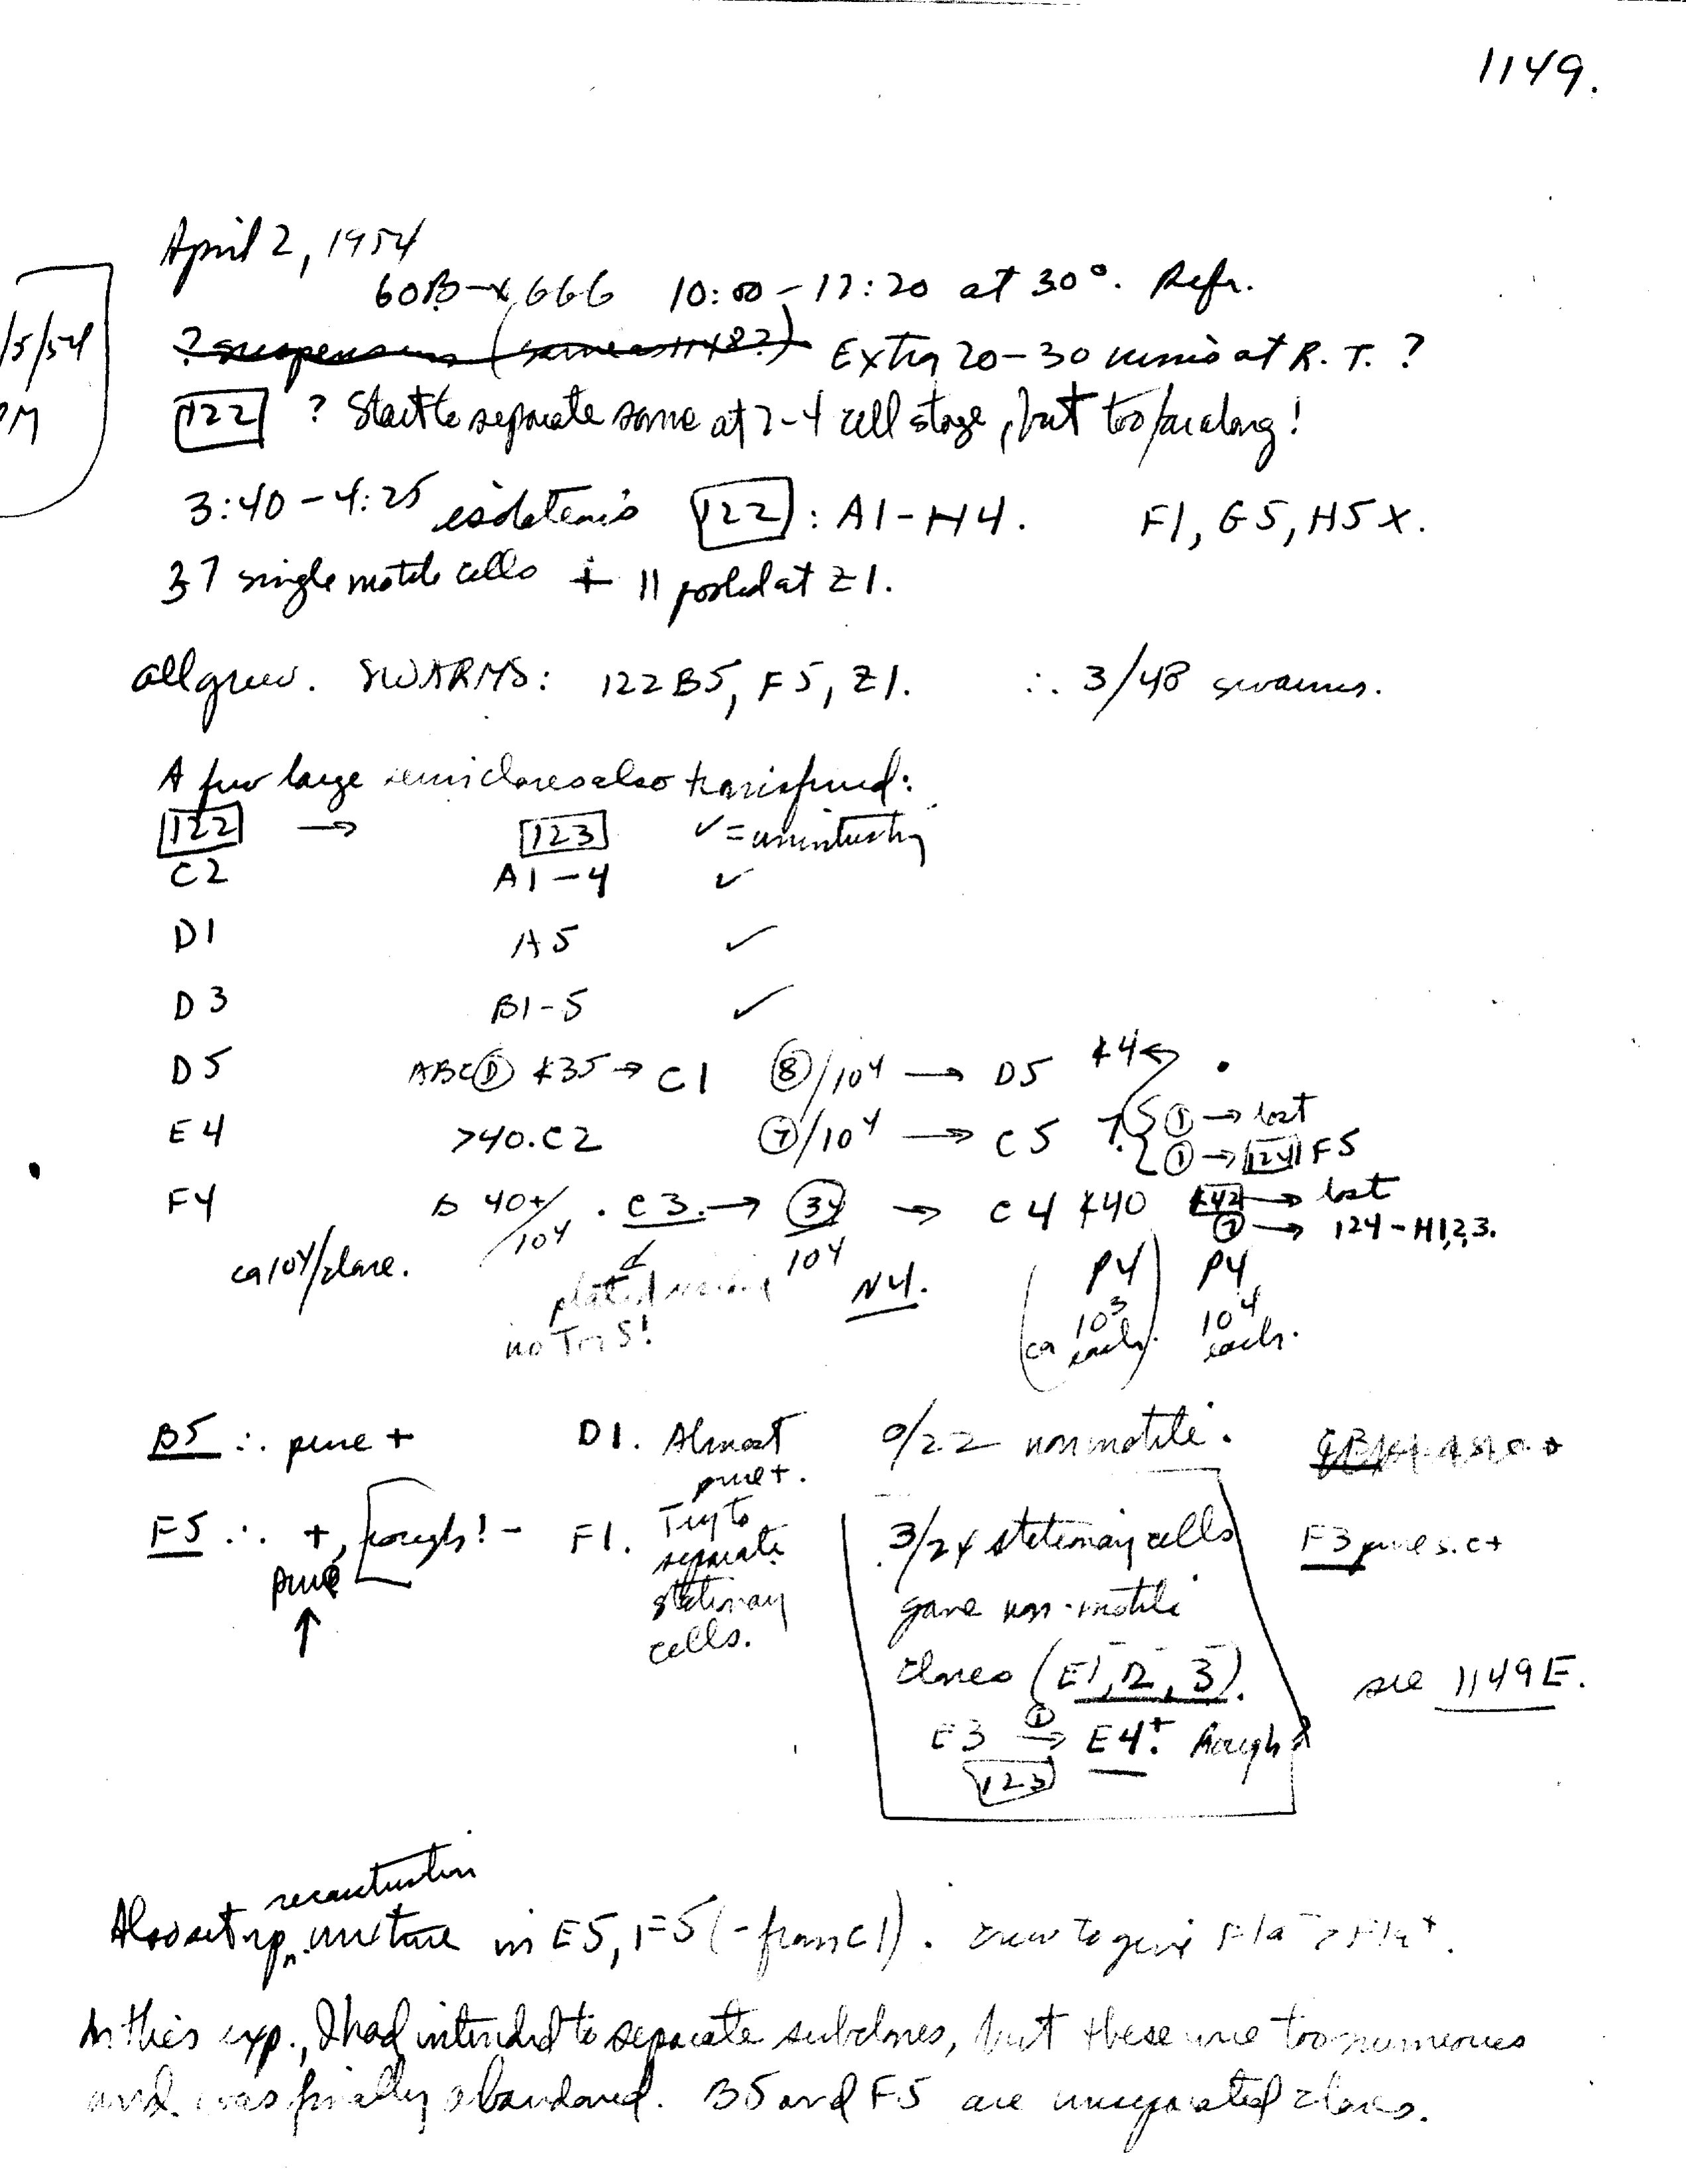 1149.
April 2, 1954
60B -x 666 10:00-12:20 at 30°. Refr.
/5/54
PM
? suspensions (same as 1148?) Extra 20-30 mins at R.T. ?
122 ? Start to separate some at 2-4 cell stage, but too far along!
3:40-4:25 isolations 122 : A1-H4. F1, G5, H5 X.
37 single motile cells + 11 pooled at Z1.
All grew. SWARMS: 122B5, F5, Z1. ∴ 3/48 swarms.
A few large semiclones also transferred:
122 → 123 ✓ = uninteresting
C2 A1-4 ✓
D1 A5 ✓
D3 B1-5 ✓
D5 ABCD 35 → C1 8/10⁴ → D5
E4 >40. C2 7/10⁴ → C5 1 → lost
1 → 124 F5
F4 40+/10⁴ . C3. → 34/10⁴ → C4 → lost
→ 124-H1,2,3.
ca 10⁴/clone.
plated
no Tris!
N4.
(P4 ca 10³ each) P4 10⁴ each.
B5 ∴ pure + D1. Almost pure +. 0/22 nonmotile.
F5 ∴ +, rough! - F1. Try to separate stationary cells.
pure
↑
3/24 stationary cells
gave non-motile
clones (E1, 2, 3).
E3 1 → E4⁺. Rough
123
F3 pure s. c+
see 1149E.
Also set up reconstruction mixture in E5, F5 (- from C1). Grew to give Fla⁻ > Fla⁺.
In this exp., I had intended to separate subclones, but these were too numerous
and was finally abandoned. B5 and F5 are unseparated clones.